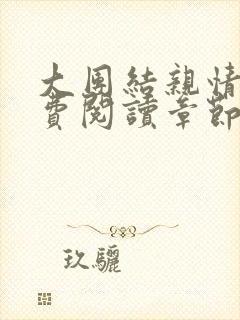 大團結親情
費閱讀章節
玖驪